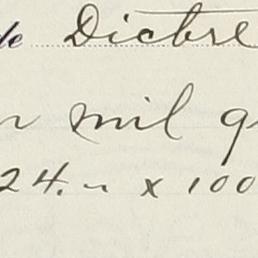 de Dicbre
mil
24. " x 100